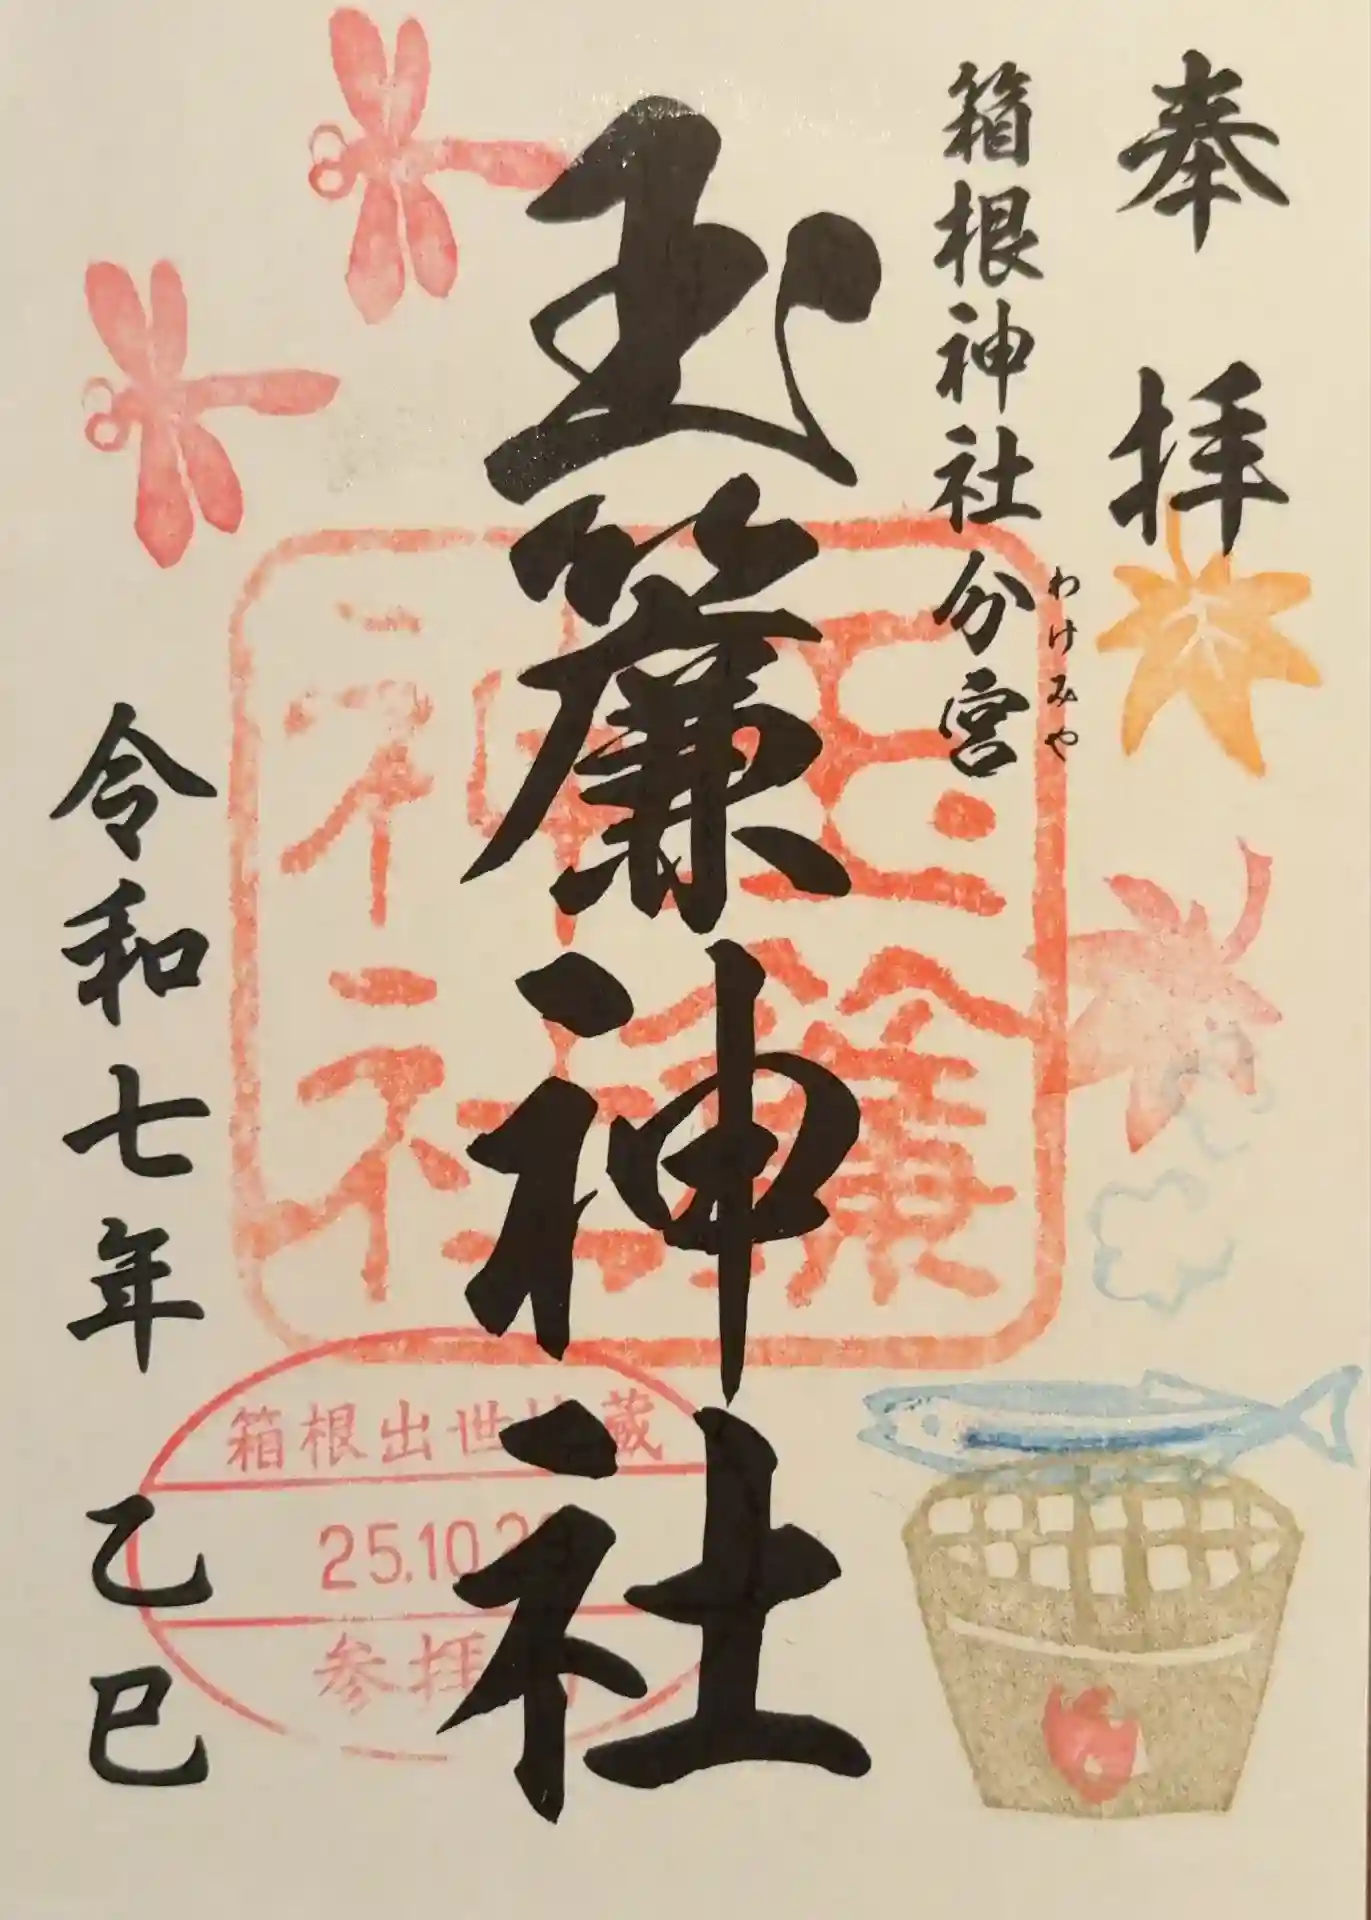 奉拝
箱根神社分宮
わけみや
玉簾神社
玉簾
神社
令和七年 乙巳
箱根出世
蔵
25.10.2
参拝